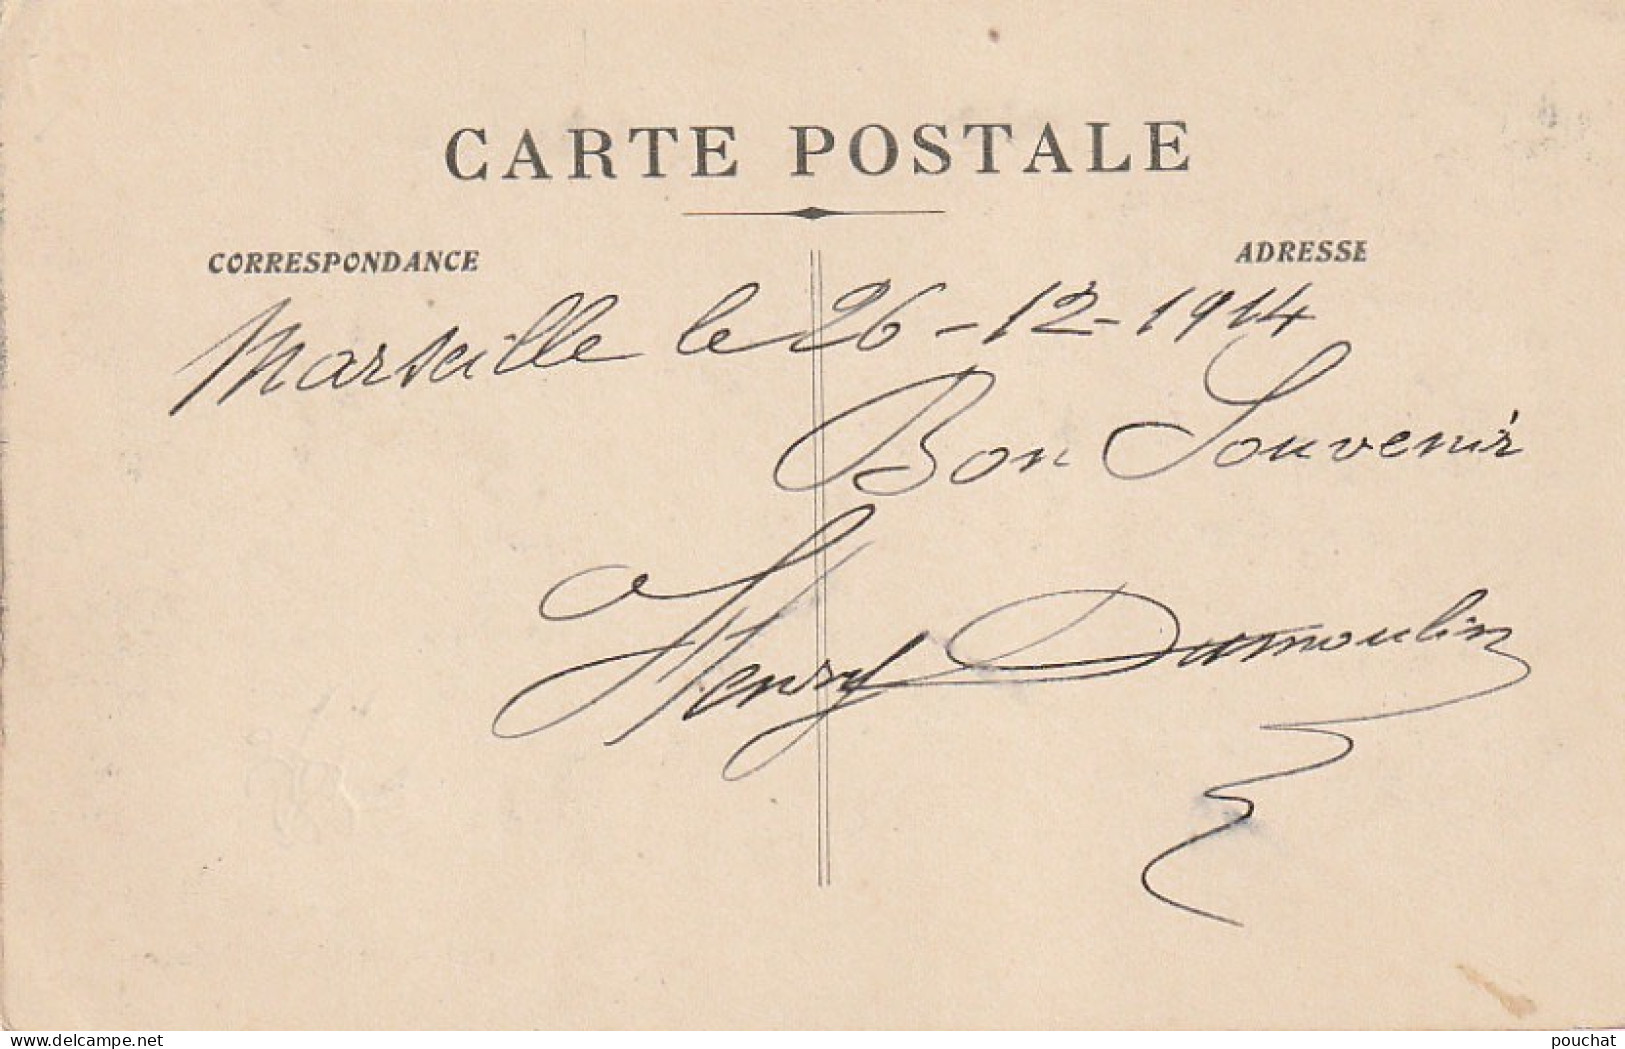 CARTE POSTALE
CORRESPONDANCE
ADRESSE
Marseille le 26-12-1914
Bon Souvenir
Henry Dumoulin
www.delcampe.net
pouchat